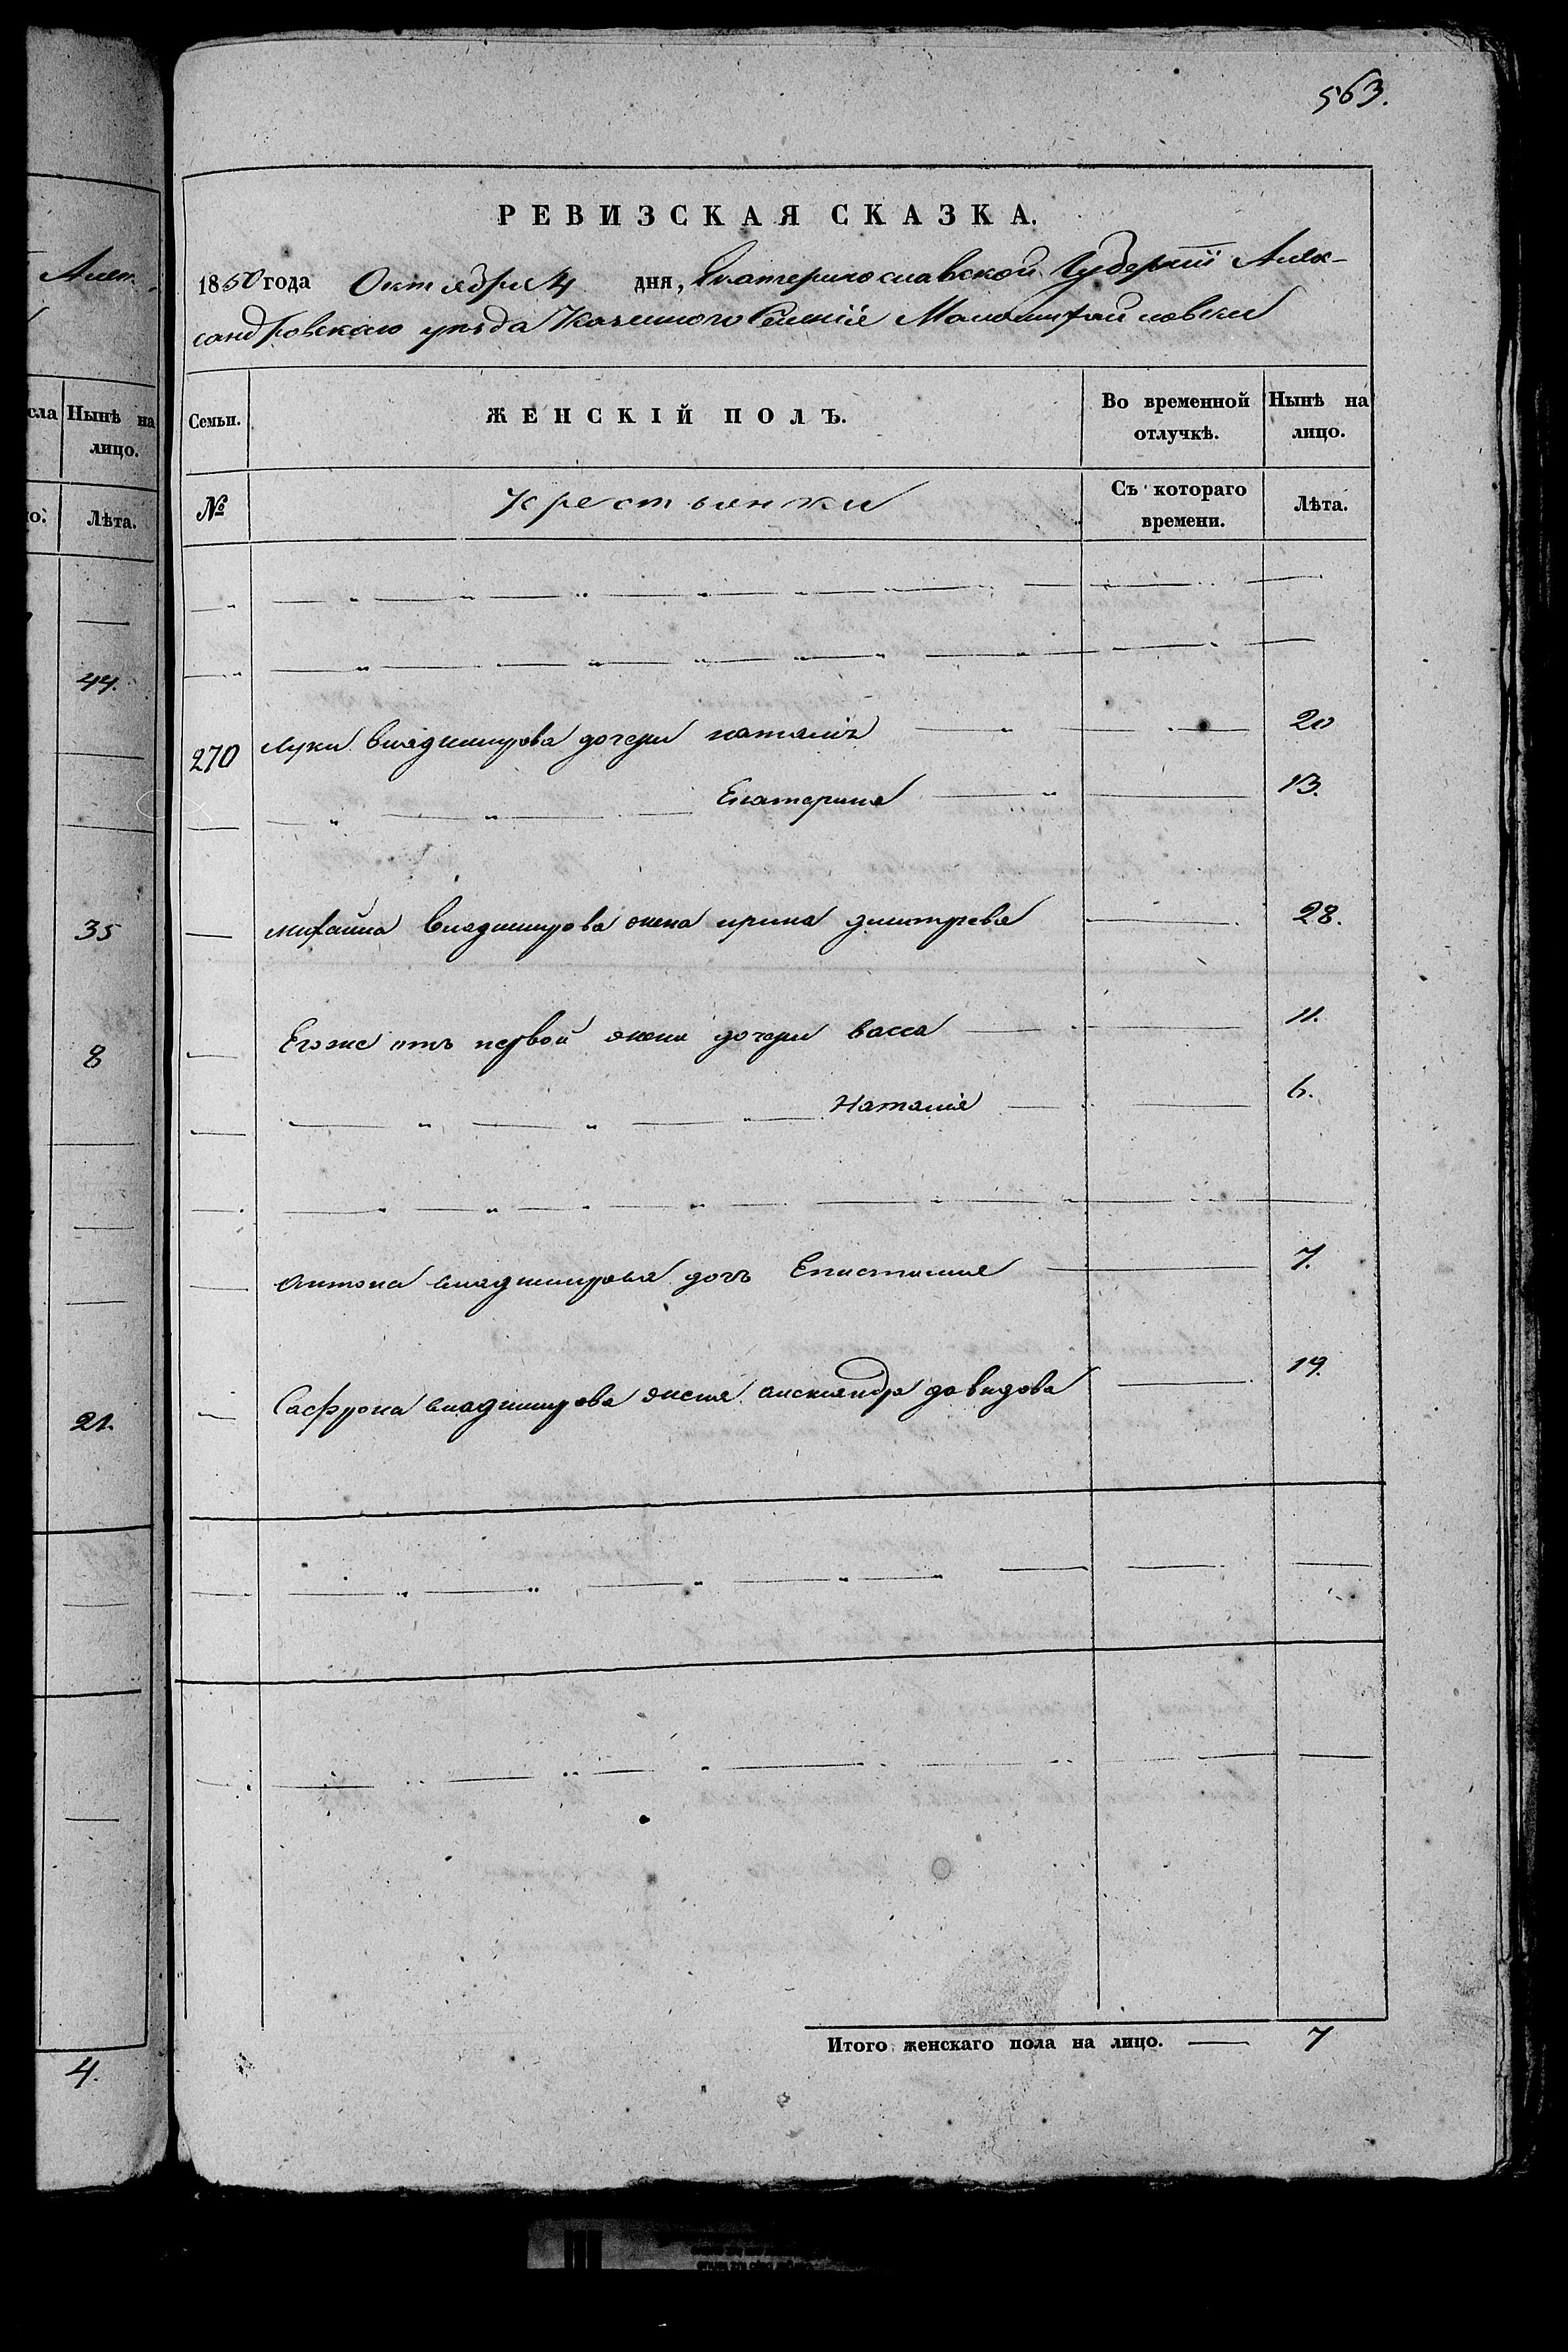 563.
Алек-
РЕВИЗСКАЯ СКАЗКА.
1850 года Октября 4 дня, Екатеринославской Губернiи Алек-
сандровскаго уѣзда Казенного Селенiя Маломихайловки
сла
Нынѣ на лицо.
Семьи.
ЖЕНСКІЙ ПОЛЪ.
Во временной отлучкѣ.
Нынѣ на лицо.
Лѣта.
№
Крестьянки
Съ котораго времени.
Лѣта.
44.
270 Луки владимирова дочери наталія 20
Екатерина 13.
35
михайла владимирова жена ирина дмитрева 28.
8
Егоже отъ первой жены дочери васса 11.
Наталія 6.
Антона владимирова дочь Епистимия 7.
21.
Сафрона владимирова жена александра давидова 19.
Итого женскаго пола на лицо. 7
4.